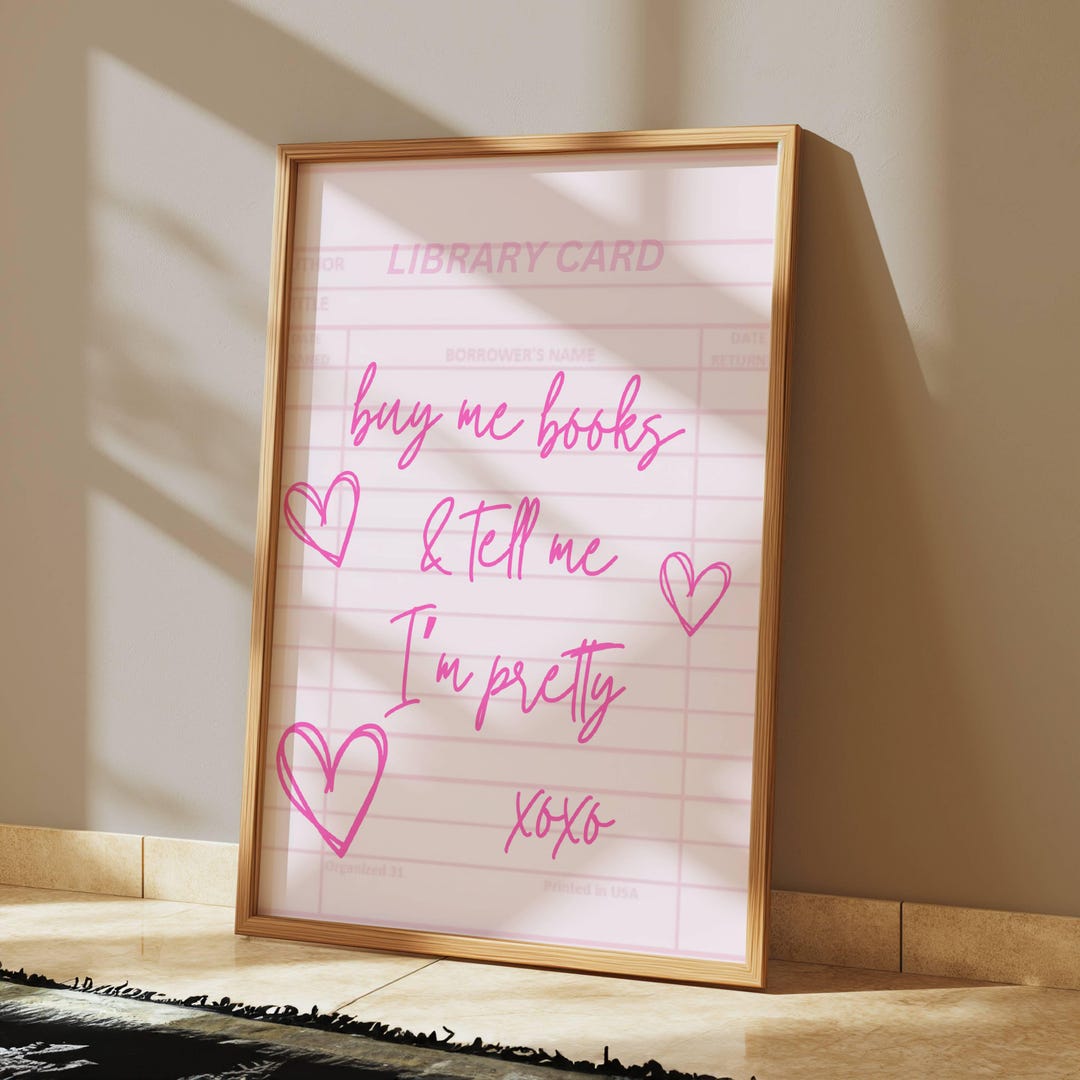 LIBRARY CARD
THOR
TITLE
DATE
BORROWER'S NAME
RETURN
buy me books
& tell me
I'm pretty
xoxo
Organized 31
Printed in USA